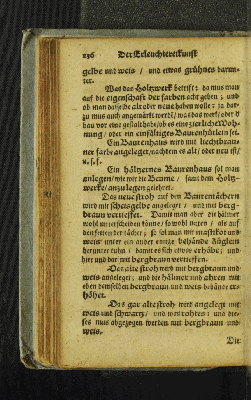 136 Der Erleuchtereckunst
gelbe und weis / und etwas grühnes darun-
ter.
Was das Holtzwerk betrift: da mus man
auf die eigenschaft der farben acht geben ; und
ob man dasselbe alt oder neus haben wolle : ja dar-
zu mus auch angemärkt werde / was das werk / oder d'
bau vor eine gestalt habe / ob es eine zierliche Woh-
nung / oder ein einfältiges Baurenhütlein sei.
Ein Baurenhaus wird mit liechtbrau-
ner farbe angeleget / nachdem es alt / oder neu ist /
u. s. f.
Ein höltzernes Baurenhaus sol man
anlegen / wie wir die Beume / samt dem Holtz-
werke / an zu legen gelehret.
Das neue stroh auf den Baurendächern
wird mit scheisgelbe angelegt / und mit berg-
braun vertieffet. Damit man aber die hälmer
wohl unterscheiden könne / so wohl neben / als auf
den seiten der dächer ; so sol man mit mastikot und
weis unter ein ander etliche behände Züglein
herunter tuhn / damit es sich etwas erhöbe ; und
hier und dar mit bergbraun vertieffen.
Das alte stroh wird mit bergbraun und
weis angelegt ; und die hälmer und ähren mit
eben demselben bergbraun und weis behände er-
höhet.
Das gar alte stroh wird angelegt mit
weis und schwartz / und was rohtes : und die-
ses mus abgezogen werden mit bergbraun und
weis.
Die